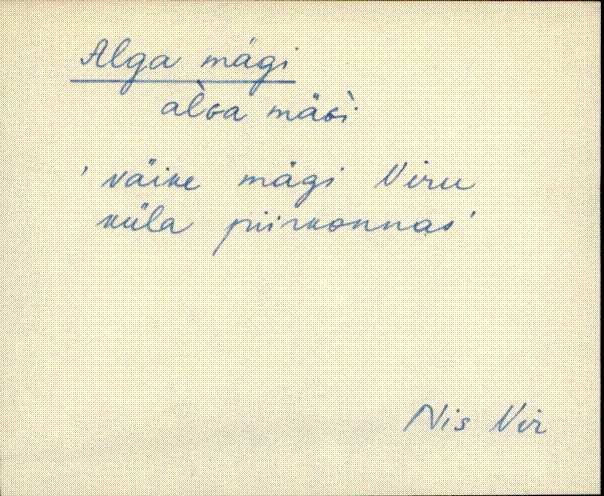 Alga mägi
al̀ɢa mäɢì
'väike mägi Viru
küla piirkonnas'
Nis Vir